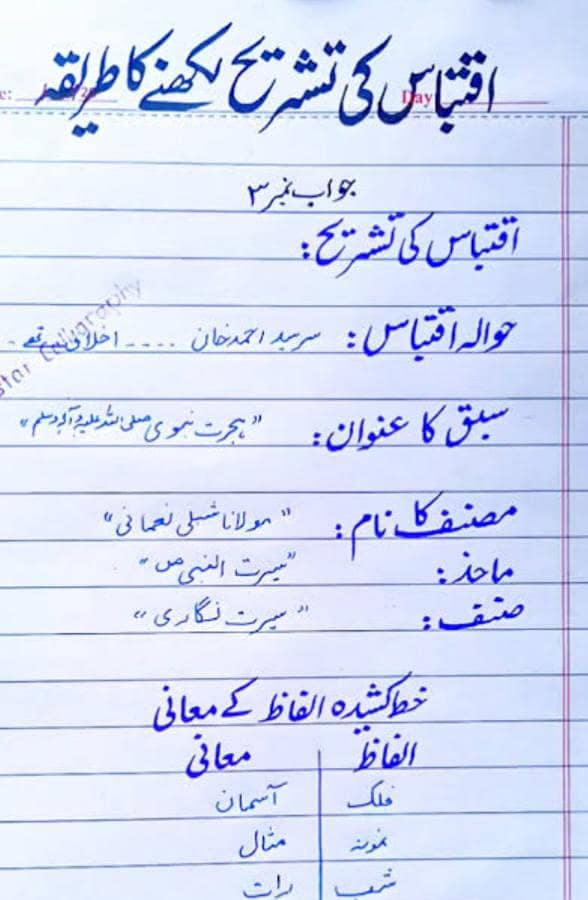 اقتباس کی تشریح لکھنے کا طریقہ
Day
جواب نمبر ۳
اقتباس کی تشریح:
حوالہ اقتباس: سرسید احمد خان .... اخلاق تھے۔
star Calligraphy
سبق کا عنوان: "ہجرت نبوی صلی اللہ علیہ وآلہ وسلم"
مصنف کا نام: "مولانا شبلی نعمانی"
ماخذ: "سیرت النبی ص"
صنف: "سیرت نگاری"
خط کشیدہ الفاظ کے معانی
الفاظ معانی
فلک آسمان
نمونہ مثال
شب رات